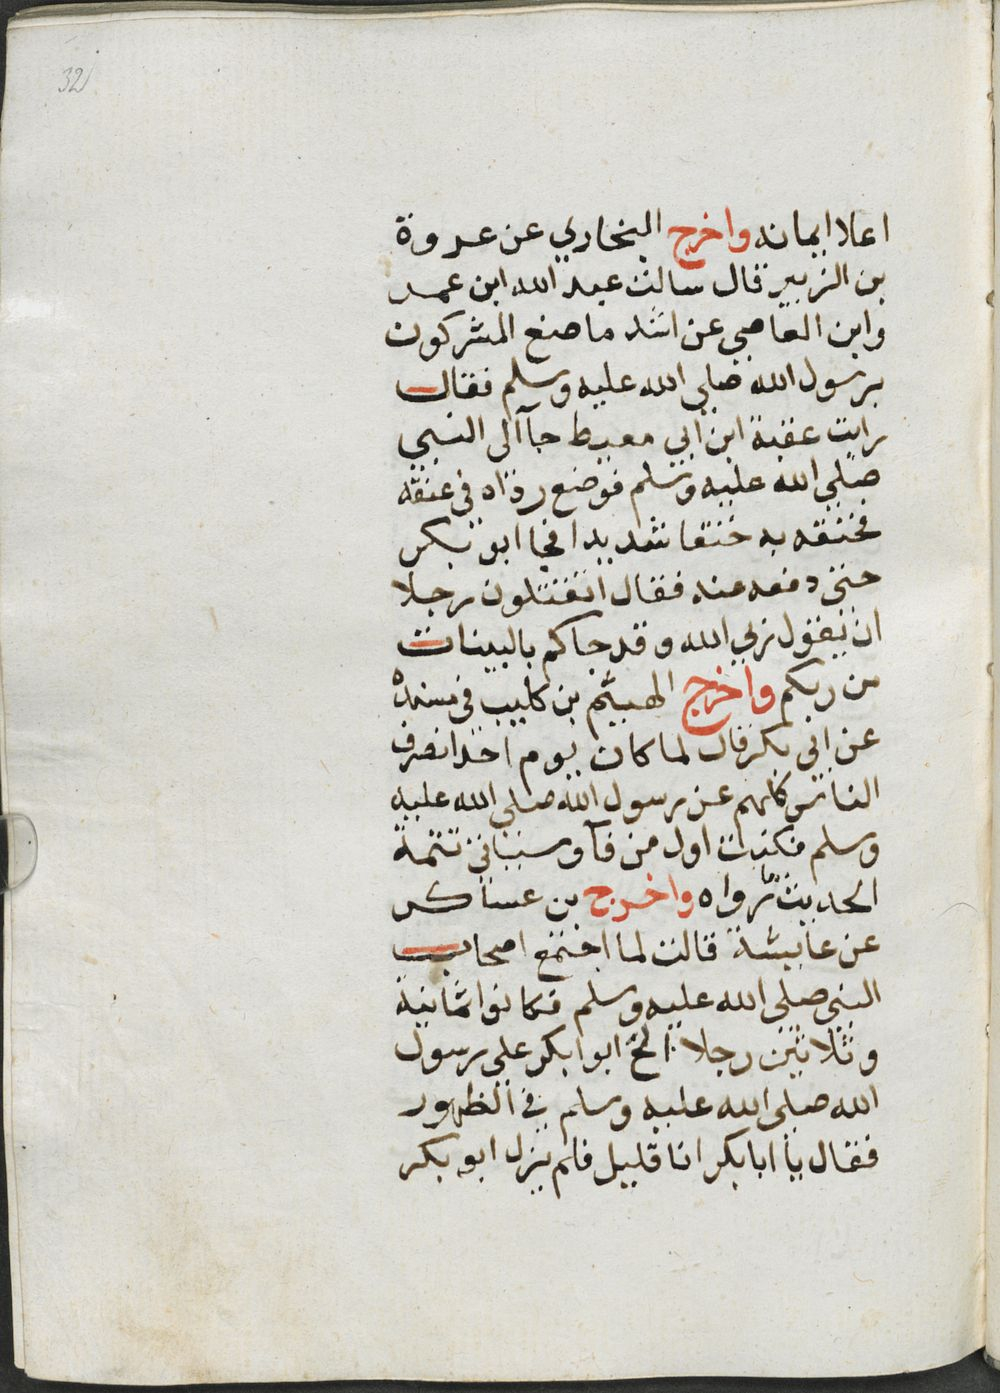 32
اعلا ايمانه واخرج البخاري عن عروة
بن الزبير قال سالت عبد الله ابن عمر
وابن العاصي عن اشد ما صنع المشركون
برسول الله صلي الله عليه وسلم فقال
رايت عقبة ابن ابي معيط جآ الى النبي
صلي الله عليه وسلم فوضع رداه في عنقه
فخنقه به خنقا شديدا فجا ابو بكر
حتى دفعه عنه فقال اتقتلون رجلا
ان يقول ربي الله وقد جاكم بالبينات
من ربكم واخرج الهيثم بن كليب في مسنده
عن ابي بكر قال لما كان يوم احد انصرف
الناس كلهم عن رسول الله صلى الله عليه
وسلم فكنت اول من فآ وسيتاتي تتمة
الحديث ما رواه واخرج بن عساكر
عن عايشة قالت لما اجتمع اصحاب
النبي صلى الله عليه وسلم فكانوا ثمانية
وثلاثين رجلا الح ابوا بكر على رسول
الله صلى الله عليه وسلم في الظهور
فقال يا ابا بكر انا قليل فلم يزل ابو بكر